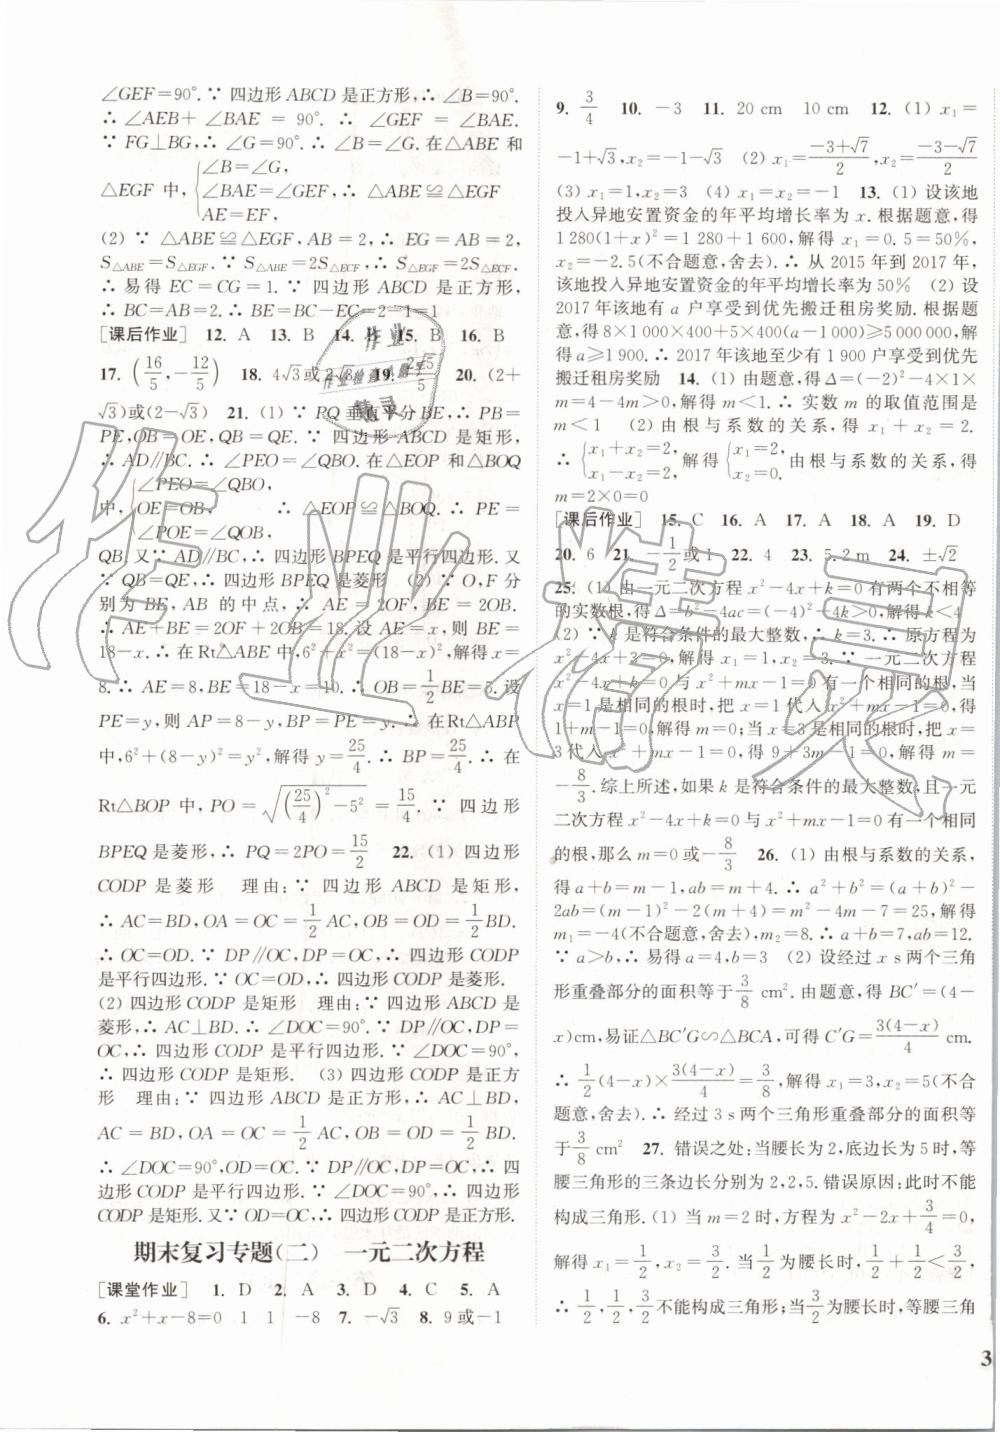 ∠GEF=90°.∵ 四边形 ABCD 是正方形,∴ ∠B=90°.
∴ ∠AEB+ ∠BAE = 90°. ∴ ∠GEF = ∠BAE.
∵ FG⊥BG,∴ ∠G=90°.∴ ∠B=∠G.在△ABE 和
△EGF 中,{∠B=∠G, ∠BAE=∠GEF, AE=EF, ∴ △ABE≌△EGF
(2) ∵ △ABE≌△EGF,AB=2,∴ EG=AB=2,
S△ABE=S△EGF.∵ S△ABE=2S△ECF,∴ S△EGF=2S△ECF.
∴ 易得 EC=CG=1.∵ 四边形 ABCD 是正方形,
∴ BC=AB=2.∴ BE=BC-EC=2-1=1
[课后作业] 12. A 13. B 14. B 15. B 16. B
17. (16/5,-12/5) 18. 4√3或2√3 19. 20. (2+
√3)或(2-√3) 21. (1) ∵ PQ 垂直平分 BE,∴ PB=
PE,OB=OE,QB=QE.∵ 四边形 ABCD 是矩形,
∴ AD∥BC.∴ ∠PEO=∠QBO.在△EOP 和△BOQ
中,{∠PEO=∠QBO, OE=OB, ∠POE=∠QOB, ∴ △EOP≌△BOQ.∴ PE=
QB.又∵ AD∥BC,∴ 四边形 BPEQ 是平行四边形.又
∵ QB=QE,∴ 四边形 BPEQ 是菱形 (2) ∵ O,F 分
别为 BE,AB 的中点,∴ AE=2OF,BE=2OB.
∴ AE+BE=2OF+2OB=18.设 AE=x,则 BE=
18-x.∴ 在 Rt△ABE 中,6²+x²=(18-x)²,解得 x=
8.∴ AE=8,BE=18-x=10.∴ OB=1/2BE=5.设
PE=y,则 AP=8-y,BP=PE=y.∴ 在 Rt△ABP
中,6²+(8-y)²=y²,解得 y=25/4.∴ BP=25/4.∴ 在
Rt△BOP 中,PO=√((25/4)²-5²)=15/4.∵ 四边形
BPEQ 是菱形,∴ PQ=2PO=15/2 22. (1) 四边形
CODP 是菱形 理由:∵ 四边形 ABCD 是矩形,
∴ AC=BD,OA=OC=1/2AC,OB=OD=1/2BD.
∴ OC=OD.∵ DP∥OC,DP=OC,∴ 四边形 CODP
是平行四边形.∵ OC=OD,∴ 四边形 CODP 是菱形.
(2) 四边形 CODP 是矩形 理由:∵ 四边形 ABCD 是
菱形,∴ AC⊥BD.∴ ∠DOC=90°.∵ DP∥OC,DP=
OC,∴ 四边形 CODP 是平行四边形.∵ ∠DOC=90°,
∴ 四边形 CODP 是矩形. (3) 四边形 CODP 是正方
形 理由:∵ 四边形 ABCD 是正方形,∴ AC⊥BD,
AC = BD,OA = OC = 1/2 AC,OB = OD = 1/2 BD.
∴ ∠DOC=90°,OD=OC.∵ DP∥OC,DP=OC,∴ 四
边形 CODP 是平行四边形.∵ ∠DOC=90°,∴ 四边形
CODP 是矩形.又∵ OD=OC,∴ 四边形 CODP 是正方形.
期末复习专题(二) 一元二次方程
[课堂作业] 1. D 2. A 3. D 4. C 5. A
6. x²+x-8=0 1 1 -8 7. -√3 8. 9或-1
9. 3/4 10. -3 11. 20 cm 10 cm 12. (1) x₁=
-1+√3,x₂=-1-√3 (2) x₁=(-3+√7)/2,x₂=(-3-√7)/2
(3) x₁=1,x₂=3 (4) x₁=x₂=-1 13. (1) 设该地
投入异地安置资金的年平均增长率为 x.根据题意,得
1 280(1+x)²=1 280+1 600,解得 x₁=0.5=50%,
x₂=-2.5(不合题意,舍去).∴ 从 2015 年到 2017 年,
该地投入异地安置资金的年平均增长率为 50% (2) 设
2017 年该地有 a 户享受到优先搬迁租房奖励.根据题
意,得 8×1 000×400+5×400(a-1 000)≥5 000 000,
解得 a≥1 900.∴ 2017 年该地至少有 1 900 户享受到优先
搬迁租房奖励 14. (1) 由题意,得Δ=(-2)²-4×1×
m=4-4m>0,解得 m<1.∴ 实数 m 的取值范围是
m<1 (2) 由根与系数的关系,得 x₁+x₂=2.
∴ {x₁+x₂=2, x₁-x₂=2, 解得{x₁=2, x₂=0. 由根与系数的关系,得
m=2×0=0
[课后作业] 15. C 16. A 17. A 18. A 19. D
20. 6 21. -1/2或1 22. 4 23. 5.2 m 24. ±√2
25. (1) 由一元二次方程 x²-4x+k=0 有两个不相等
的实数根,得Δ=b²-4ac=(-4)²-4k>0,解得 k<4
(2) ∵ k 是符合条件的最大整数,∴ k=3.∴ 原方程为
x²-4x+3=0,解得 x₁=1,x₂=3.∵ 一元二次方程
x²-4x+k=0 与 x²+mx-1=0 有一个相同的根,当
x=1 是相同的根时,把 x=1 代入 x²+mx-1=0,得
1+m-1=0,解得 m=0;当 x=3 是相同的根时,把 x=
3 代入 x²+mx-1=0,得 9+3m-1=0,解得 m=
-8/3.综上所述,如果 k 是符合条件的最大整数,且一元
二次方程 x²-4x+k=0 与 x²+mx-1=0 有一个相同
的根,那么 m=0 或-8/3 26. (1) 由根与系数的关系,
得 a+b=m-1,ab=m+4.∴ a²+b²=(a+b)²-
2ab=(m-1)²-2(m+4)=m²-4m-7=25,解得
m₁=-4(不合题意,舍去),m₂=8.∴ a+b=7,ab=12.
∵ a>b,∴ 易得 a=4,b=3 (2) 设经过 x s 两个三角
形重叠部分的面积等于3/8 cm².由题意,得 BC′=(4-
x)cm,易证△BC′G∽△BCA,可得 C′G=3(4-x)/4 cm.
∴ 1/2(4-x)×3(4-x)/4=3/8,解得 x₁=3,x₂=5(不合
题意,舍去).∴ 经过 3 s 两个三角形重叠部分的面积等
于3/8 cm² 27. 错误之处:当腰长为 2,底边长为 5 时,等
腰三角形的三条边长分别为 2,2,5.错误原因:此时不能
构成三角形.(1) 当 m=2 时,方程为 x²-2x+3/4=0,
解得 x₁=1/2,x₂=3/2.当1/2为腰长时,1/2+1/2<3/2,
∴ 1/2,1/2,3/2不能构成三角形;当3/2为腰长时,等腰三角
3
作业
作业检查小助手
精灵
作业精灵